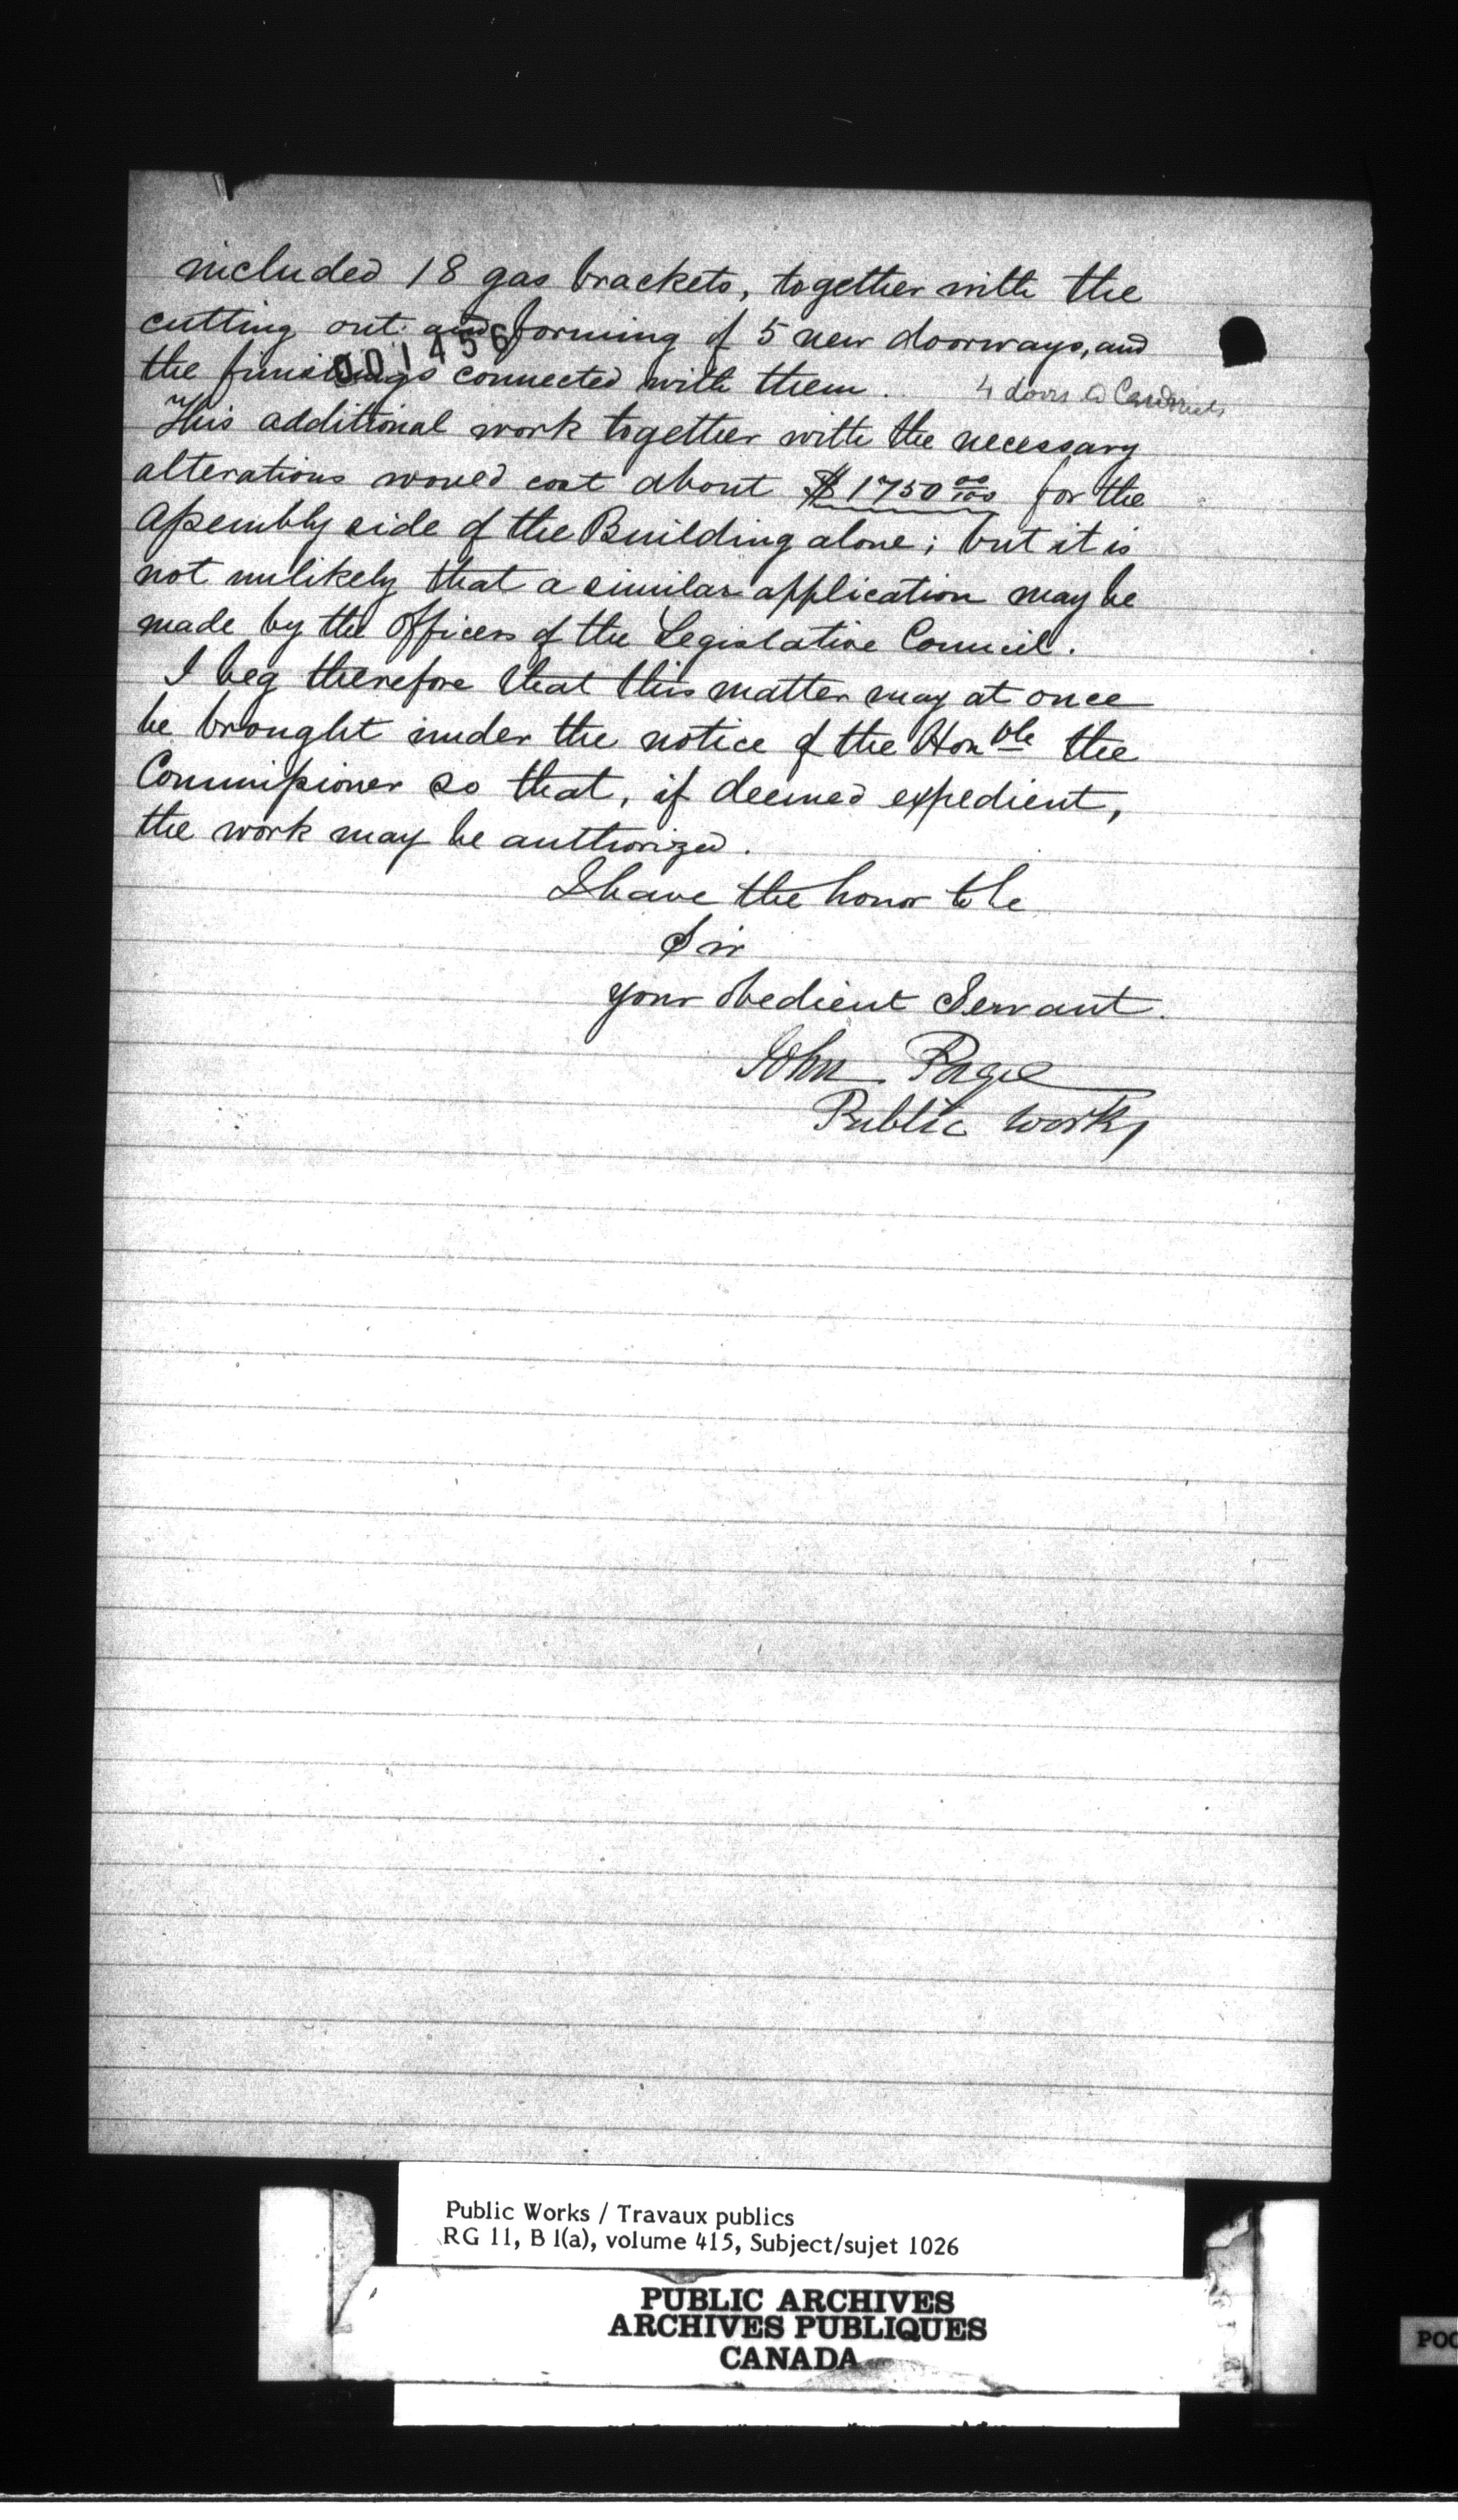 included 18 gas brackets, together with the
cutting out and forming of 5 new doorways, and
001456
the finishings connected with them.
4 doors
This additional work together with the necessary
alterations would cost about $1750 00/100 for the
Assembly side of the Building alone; but it is
not unlikely that a similar application may be
made by the Officers of the Legislative Council.
I beg therefore that this matter may at once
be brought under the notice of the Honble the
Commissioner so that, if deemed expedient,
the work may be authorized.
I have the honor to be
Sir
your obedient Servant.
John Page
Public Works
Public Works / Travaux publics
RG 11, B 1(a), volume 415, Subject/sujet 1026
PUBLIC ARCHIVES
ARCHIVES PUBLIQUES
CANADA